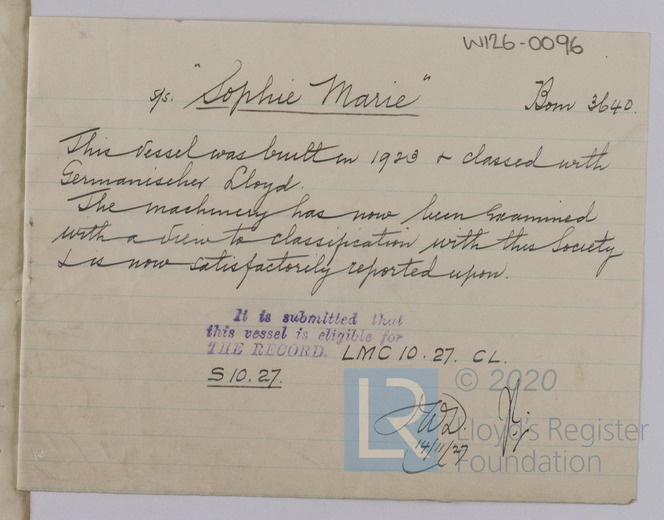 W126-0096
s/s. "Sophie Marie" Bom 3640.
This vessel was built in 1923 & classed with
Germanischer Lloyd.
The machinery has now been examined
with a view to classification with this Society
& is now satisfactorily reported upon.
It is submitted that
this vessel is eligible for
THE RECORD. LMC 10.27. CL.
S 10.27.
© 2020
LR
Lloyd's Register
Foundation
14/11/27